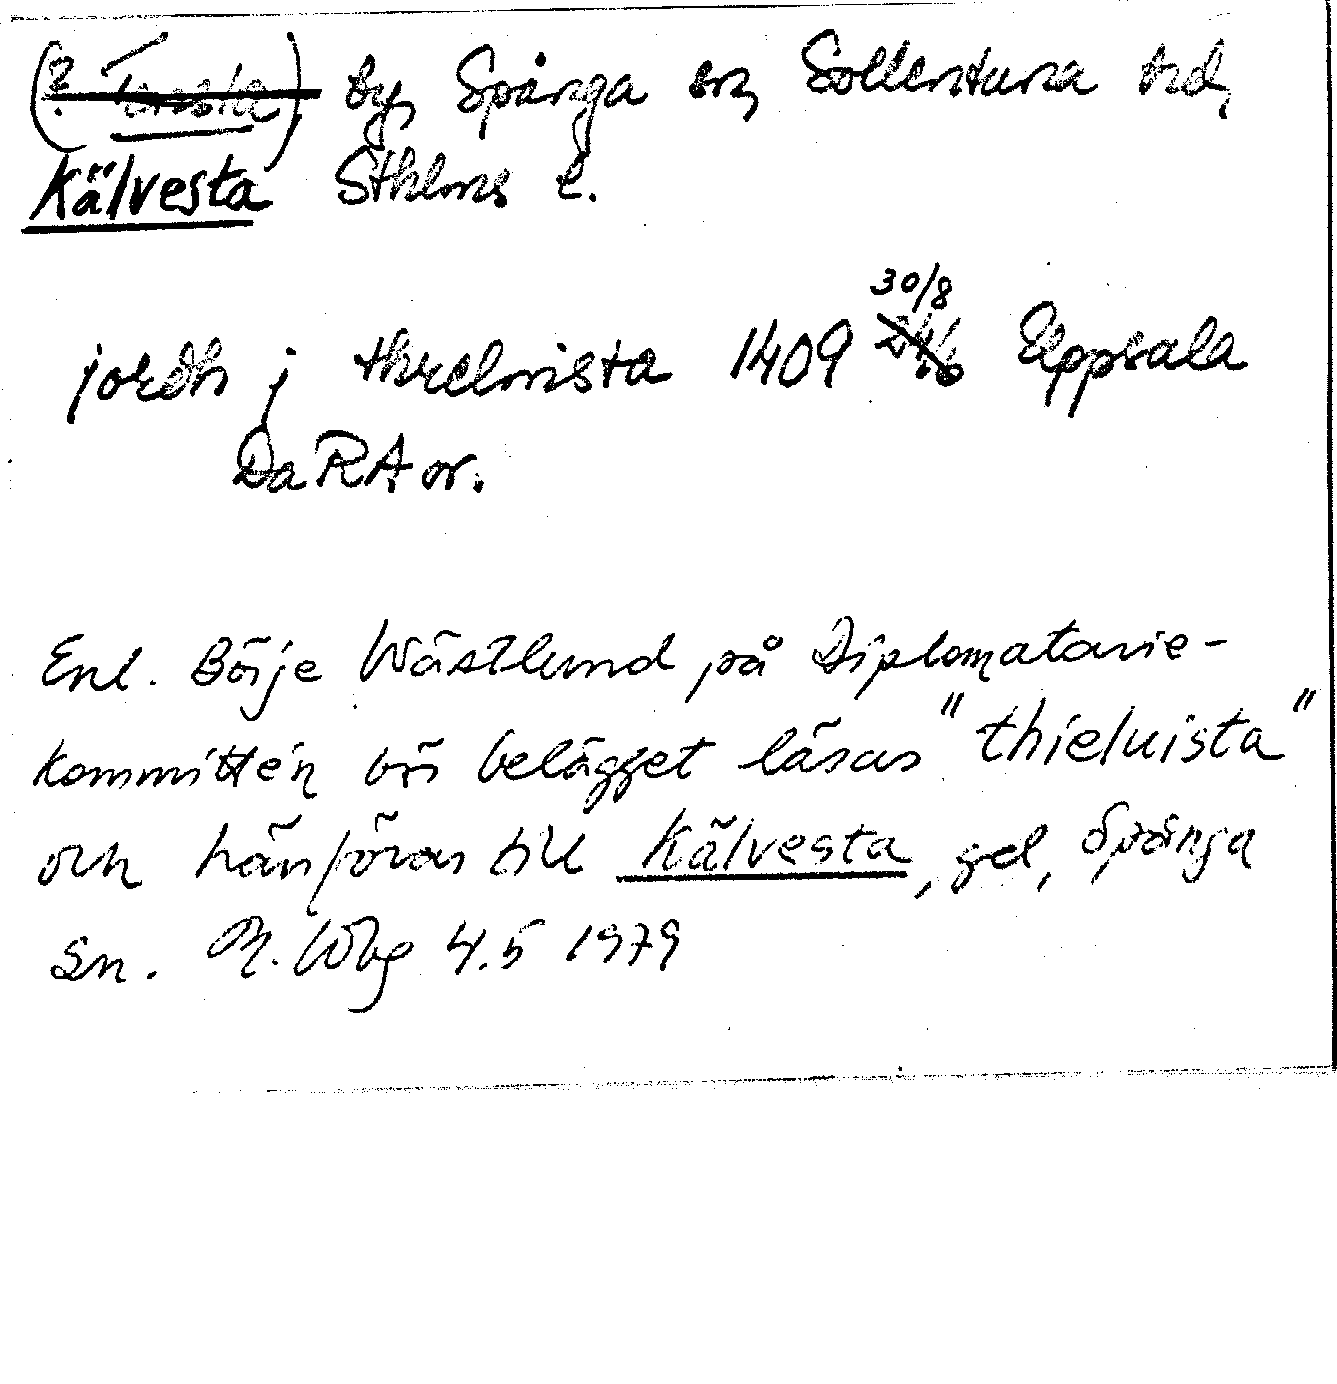 (? Tensta) by, Spånga sn, Sollentuna hd,
Kälvesta Sthlms l.
30/8
jordh j threlvista 1409 Uppsala
DaRA or.
Enl. Börje Wästlund på Diplomatarie-
kommittén bör belägget läsas "thieluista"
och hänföras till Kälvesta, gd, Spånga
sn. Wbg 4.5 1979